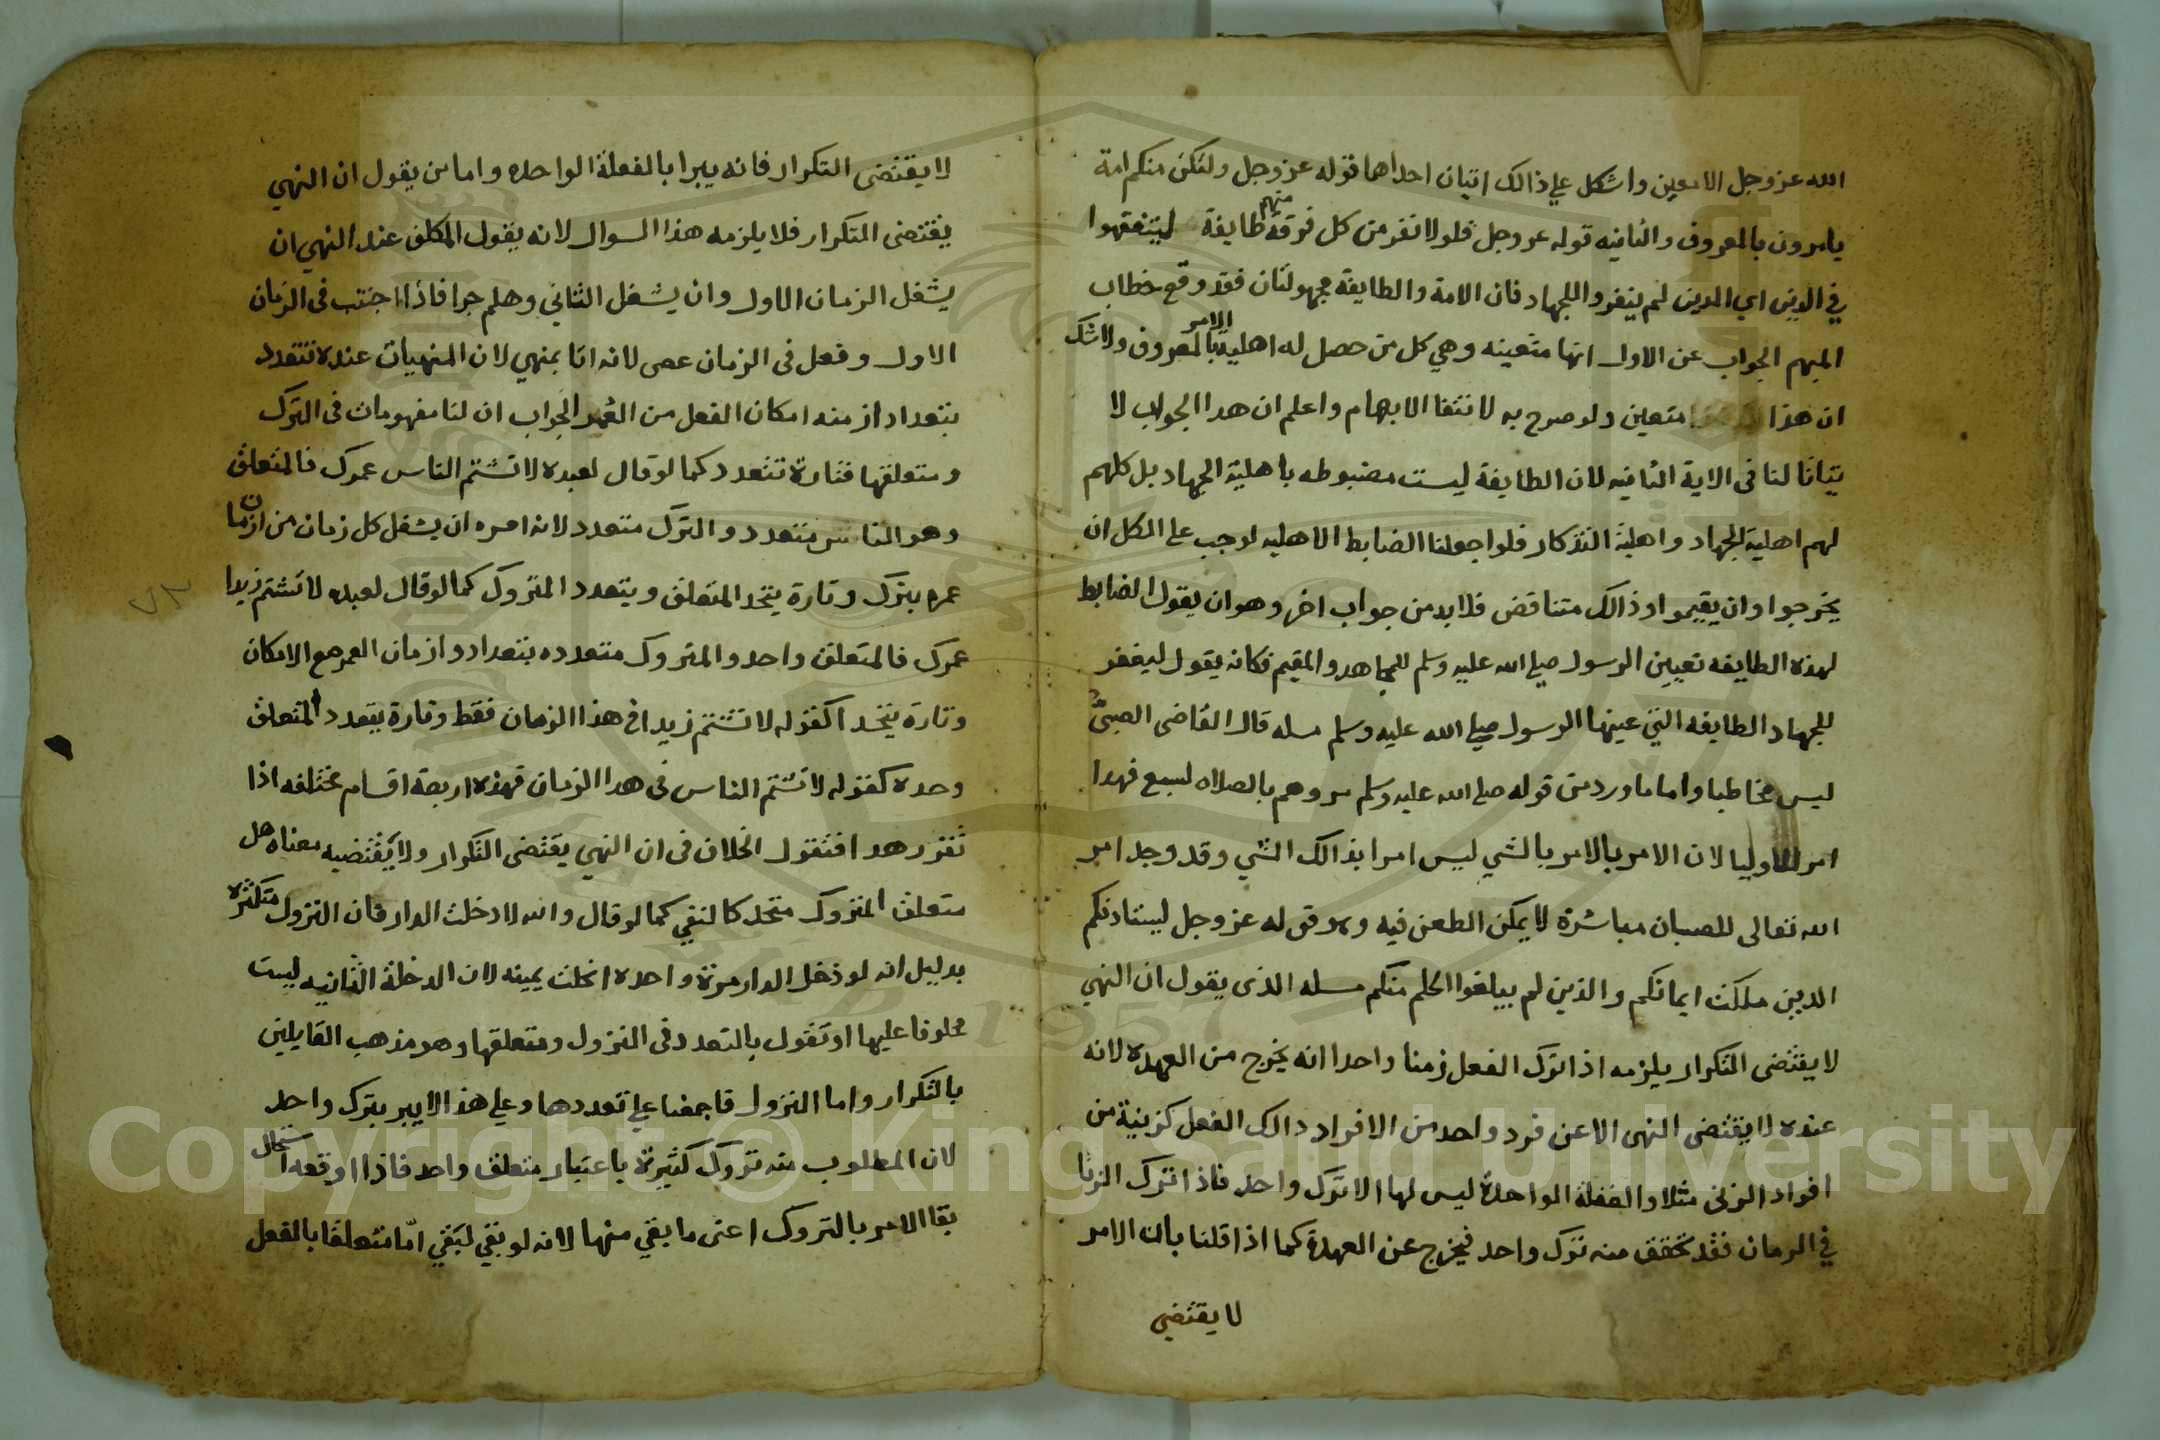 الله عز وجل الا معين واشكل علي ذالك اتيان احداهما قوله عز وجل ولتكن منكم امة
يامرون بالمعروف والثانيه قوله عز وجل فلولا نفر من كل فرقة منهم طايفة ليتفقهوا
في الدين اي الدين لم ينفروا للجهاد فان الامة والطايفة مجهولتان فقد وقع خطاب
المبهم الجواب عن الاول انها متعينه وهي كل من حصل له اهلية الامر بالمعروف ولا شك
ان هذا متعين ولو صرح به لانتفا الابهام واعلم ان هدا الجواب لا
يتاتا لنا في الاية الثانيه لان الطايفة ليست مضبوطه باهلية الجهاد بل كلهم
لهم اهلية الجهاد واهلية التذكار فلوا جعلنا الضابط الاهليه لوجب علي الكل ان
يخرجوا وان يقيموا وذالك متناقض فلا بد من جواب اخر وهو ان يقول الضابط
لهذه الطايفه تعيين الرسول صلي الله عليه وسلم للمجاهد والمقيم فكانه يقول لينفر
للجهاد الطايفه التي عينها الرسول صلي الله عليه وسلم مسله قال القاضي الصبي
ليس مخاطبا واما ما ورد من قوله صلي الله عليه وسلم مروهم بالصلاه لسبع فهدا
امر للاوليا لان الامر بالامر بالشي ليس امرا بذالك الشي وقد وجد امر
الله تعالى للصبيان مباشرة لا يمكن الطعن فيه وهو قوله عز وجل ليستاذنكم
الدين ملكت ايمانكم والذين لم يبلغوا الحلم منكم مسله الذي يقول ان النهي
لا يقتضى التكرار يلزمه اذا ترك الفعل زمنا واحدا انه يخرج من العهده لانه
عنده لا يقتضى النهى الا عن فرد واحد من الافراد دالك الفعل كزنية من
افراد الزنى مثلا والفعلة الواحدة ليس لها الا ترك واحد فاذا ترك الزنا
في الزمان فقد تحقق منه ترك واحد فيخرج عن العهدة كما اذا قلنا بان الامر
لا يقتضي
لا يقتضى التكرار فانه يبرا بالفعلة الواحده واما من يقول ان النهي
يقتضى التكرار فلا يلزمه هذا السوال لانه يقول المكلف عند النهي ان
يشغل الزمان الاول وان يشغل الثاني وهلم جرا فاذا اجتنب في الزمان
الاول وفعل في الزمان عصى لانه اتا بمنهي لان المنهيات عنده تتعدد
بتعداد ازمنه امكان الفعل من العمر الجواب ان لنا مفهومات في الترك
ومتعلقها فتارة تتعدد كما لو قال لعبده لا تشتم الناس عمرك فالمتعلق
وهو الناس متعدد والترك متعدد لانه امره ان يشغل كل زمان من ازمان
عمره بترك وتارة يتحد المتعلق ويتعدد المتروك كما لو قال لعبده لا تشتم زيدا
عمرك فالمتعلق واحد والمتروك متعدده بتعداد وازمان العمر مع الامكان
وتارة يتحدا كقوله لا تشتم زيدا في هذا الزمان فقط وتارة يتعدد المتعلق
وحده كقوله لا تشتم الناس في هدا الزمان فهذه اربعة اقسام مختلفه اذا
تقرر هدا فنقول الخلاف في ان النهي يقتضى التكرار ولا يقتضيه معناه هل
متعلق المتروك متحد كالنفي كما لو قال والله لا دخلت الدار فان التزول متكثره
بدليل انه لو دخل الدار مرة واحده انحلت يمينه لان الدخلة الثانيه ليست
محلوفا عليها او تقول بالتعدد في التزول ومتعلقها وهو مذهب القايلين
بالتكرار واما التزول فاجمعنا علي تعددها وعلي هذا لا يبر بترك واحد
لان المطلوب منه تروك كثيرة باعتبار متعلق واحد فاذا اوقعه استحال
بقا الامر بالتروك اعنى ما بقي منها لانه لو بقي لبقي اما متعلقا بالفعل